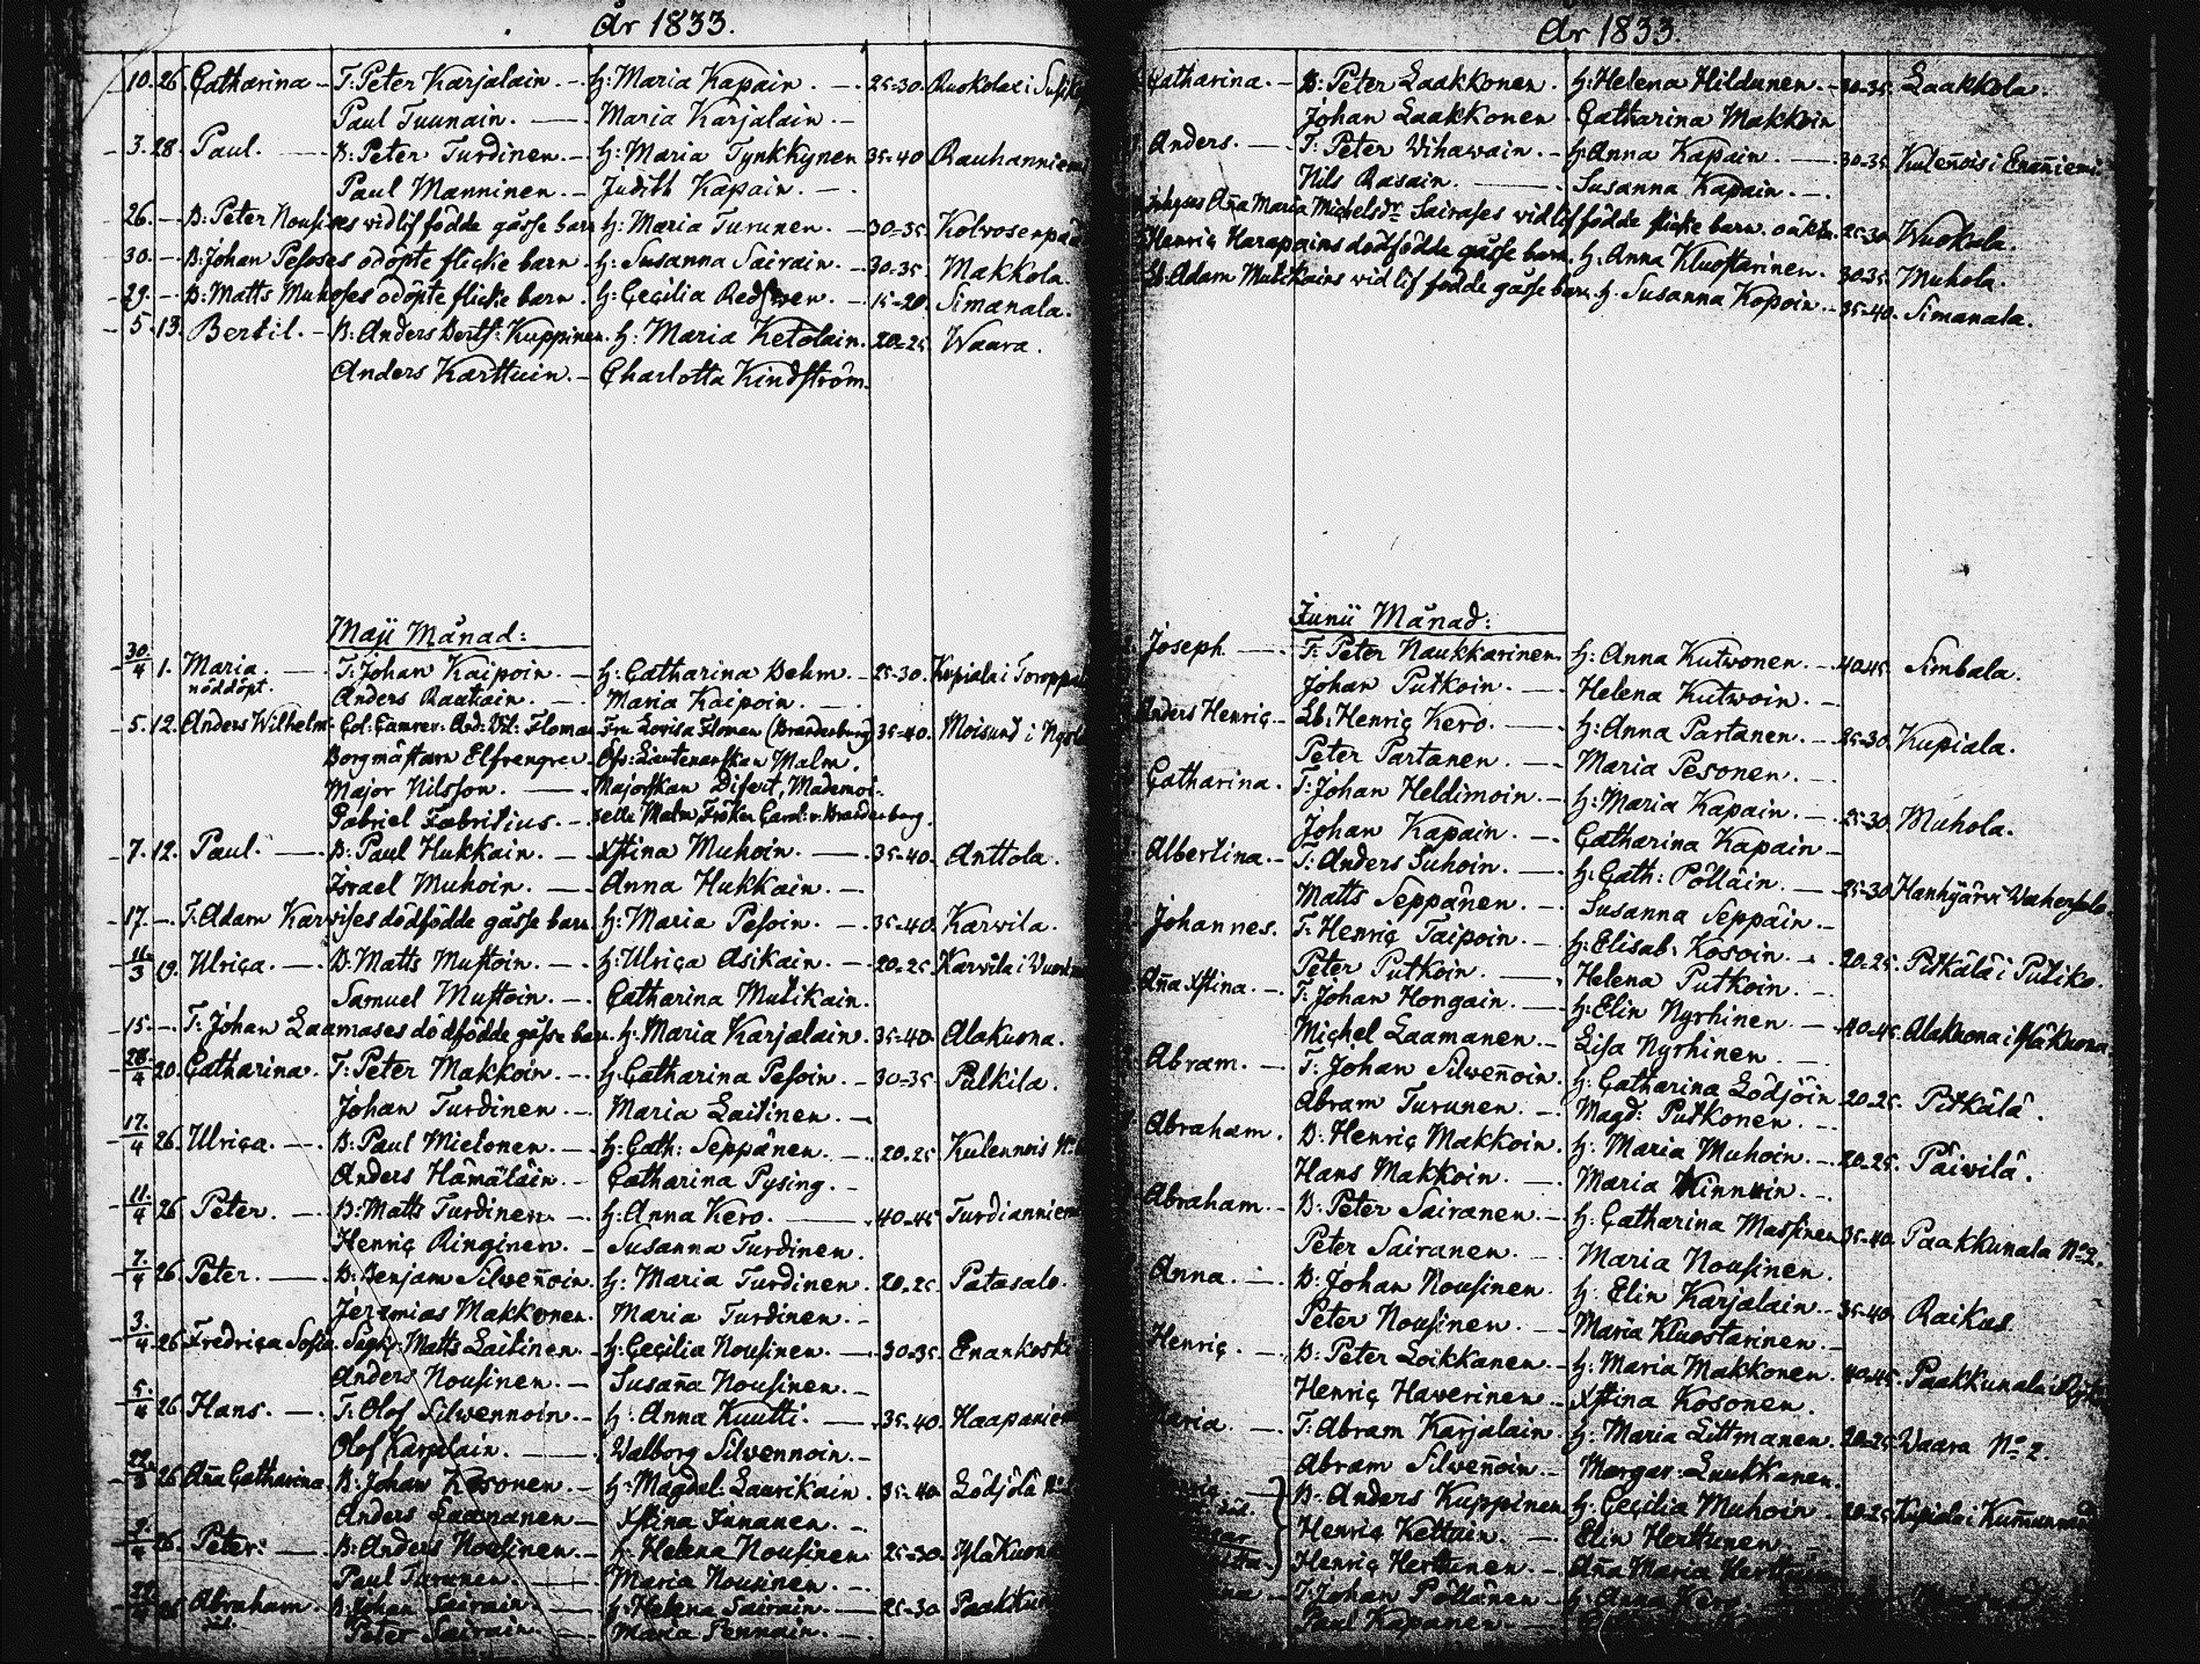 År 1833.
10. 26. Catharina - T: Peter Karjalain. - H: Maria Kapain. - 25-30. Ruokolax i
Paul Tuunain. - Maria Karjalain -
3. 28. Paul. - B: Peter Turdinen. - H: Maria Tynkkynen 35-40 Rauhanniemi
Paul Manninen. - Judith Kapain. -
26. - B: Peter Nousises vid lif födde gåsse barn H: Maria Turunen. - 30-35. Kolvosenpää
30. - B: Johan Pesoses odöpte flicke barn. H: Susanna Sairain. - 30-35. Makkola.
29. - B: Matts Muhoses odöpte flicke barn. H: Cecilia Redswen. - 15-20. Simanala.
5. 13. Bertil. - B: Anders Berts: Kuppinen. H: Maria Ketolain. 20-25. Waara.
Anders Karttuin. - Charlotta Kindström.
Maji Månad:
30/4 1. Maria. - T: Johan Kaipoin. - H: Catharina Behm. - 25-30. Kupiala i
nöddöpt. Anders Rautiain. - Maria Kaipoin. -
5. 12. Anders Wilhelm. Col: Camrer: And: Vil: Floman Fru Lovisa Floman (Branderburg) 35-40. Moisund i
Borgmästarn Elfvengren Öfv: Lieutenantskan Malm.
Major Nilsson. - Majorskan Difert, Mademoi-
Gabriel Fabritius. - selle Malm, Fröken Carol: v: Branderburg.
7. 12. Paul. - B: Paul Hukkain. - Xstina Muhoin. - 35-40. Anttola.
Israel Muhoin. - Anna Hukkain. -
17. - T: Adam Karvises dödfödde gåsse barn H: Maria Pesoin. - 35-40. Karvila.
11/3 19. Ulrica. - B: Matts Mustoin. - H: Ulrica Asikain. - 20-25. Karvila i
Samuel Mustoin. - Catharina Mutikain.
15. - T: Johan Laamases dödfödde gåsse barn. H: Maria Karjalain. 35-40. Alakuona.
28/4 20. Catharina. T: Peter Makkoin. - H: Catharina Pesoin. - 30-35. Pulkila.
Johan Turdinen. - Maria Laitinen. -
17/4 26. Ulrica. - B: Paul Mietonen. - H: Cath: Seppänen. - 20-25. Kulennois
Anders Hämäläin. - Catharina Pysing. -
11/4 26. Peter. - B: Matts Turdinen. - H: Anna Kero. - 40-45. Turdianniemi
Henric Ringinen. - Susanna Turdinen.
7/4 26. Peter. - B: Benjam Silvenoin. H: Maria Turdinen. 20-25. Patasalo.
Jeremias Makkonen. Maria Turdinen. -
3/4 26. Fredrica Sofia. Matts Laitinen. H: Cecilia Nousinen. - 30-35. Enankoski
Anders Nousinen. - Susaña Nousinen. -
5/4 26. Hans. - T: Olof Silwennoin. - H: Anna Kuutti. - 35-40. Haapaniemi
Olof Karjalain. - Walborg Silvennoin. -
26 Aña Catharina. B: Johan Kosonen. - H: Magdal: Laurikain. 35-40. Lödjölä
Anders Laamanen - Xstina Innanen. -
26. Peter. - B: Anders Nousinen. - H: Helena Nousinen. 25-30. Yläkuona
Paul Turunen. - Maria Nousinen. -
26 Abraham. B: Johan Sairain. - H: Helena Sairain. - 25-30
Peter Sairain. - Maria Pennain. -
År 1833.
Catharina. - B: Peter Laakkonen. H: Helena Hildunen. - 30-35. Laakkola.
Johan Laakkonen Catharina Makkoin
Anders. - T: Peter Wihawain. - H: Anna Kapain. - 30-35. Kuleñois i Enañiemi
Nils Rasain. - Susanna Kapain. -
Aña Maria Michelsdr Sairases vid lif födde flicke barn. oäkta. 25-30. Wuokala.
Henric Harapains dödfödde gåsse barn. H: Anna Kluostarinen. 30-35. Muhola.
Lb: Adam Mutikains vid lif födde gåsse barn. H: Susanna Kopoin. - 35-40. Simanala.
Junii Månad:
Joseph - T: Peter Naukkarinen. H: Anna Kutwonen. - 40-45. Simbala.
Johan Putkoin. - Helena Kutwoin. -
Anders Henric. - Lb: Henric Kero. - H: Anna Partanen. - 25-30 Kupiala.
Peter Partanen. - Maria Pesonen. -
Catharina. T: Johan Heldimoin. - H: Maria Kapain. - 25-30. Muhola.
Johan Kapain. - Catharina Kapain -
Albertina. - T: Anders Suhoin. - H: Cath: Pölläin. - 25-30 Hanhijärvi
Matts Seppänen. - Susanna Seppäin. -
Johannes. T: Henric Taipoin. - H: Elisab: Kosoin. - 20-25. Pitkälä i Putiko.
Peter Putkoin. - Helena Putkoin. -
Aña Xstina. - T: Johan Hongain. - H: Elin Nyrhinen. - 40-45. Alakuona i Yläkuona
Michel Laamanen. - Lisa Nyrhinen. -
Abram. - T: Johan Silwenoin. H: Catharina Lödjöin 20-25. Pitkälä.
Abram Turunen. - Magd: Putkonen. -
Abraham. B: Henric Makkoin. H: Maria Muhoin. - 20-25. Päiwilä.
Hans Makkoin. - Maria Kinnuin. -
Abraham. - B: Peter Sairanen. - H: Catharina Massinen 35-40. Paakkunala No 2.
Peter Sairanen. - Maria Nousinen.
Anna. - B: Johan Nousinen. H: Elin Karjalain. - 35-40. Raikus
Peter Nousinen. - Maria Kluostarinen. -
Henric. - B: Peter Loikkanen. - H: Maria Makkonen. 40-45. Paakkunala
Henric Haverinen - Xstina Kosonen.
Maria. - T: Abram Karjalain. H: Maria Littmanen. 20-25 Waara No 2.
Abram Silvenoin. - Margar: Luukkanen.
B: Anders Kuppinen H: Cecilia Muhoin. 20-25 Kupiala i
Henric Kettuin. - Elin Herttunen. -
Henric Herttunen. - Aña Maria
T: Johan Pöllänen - H: Anna Kero.
Paul Kapanen. -